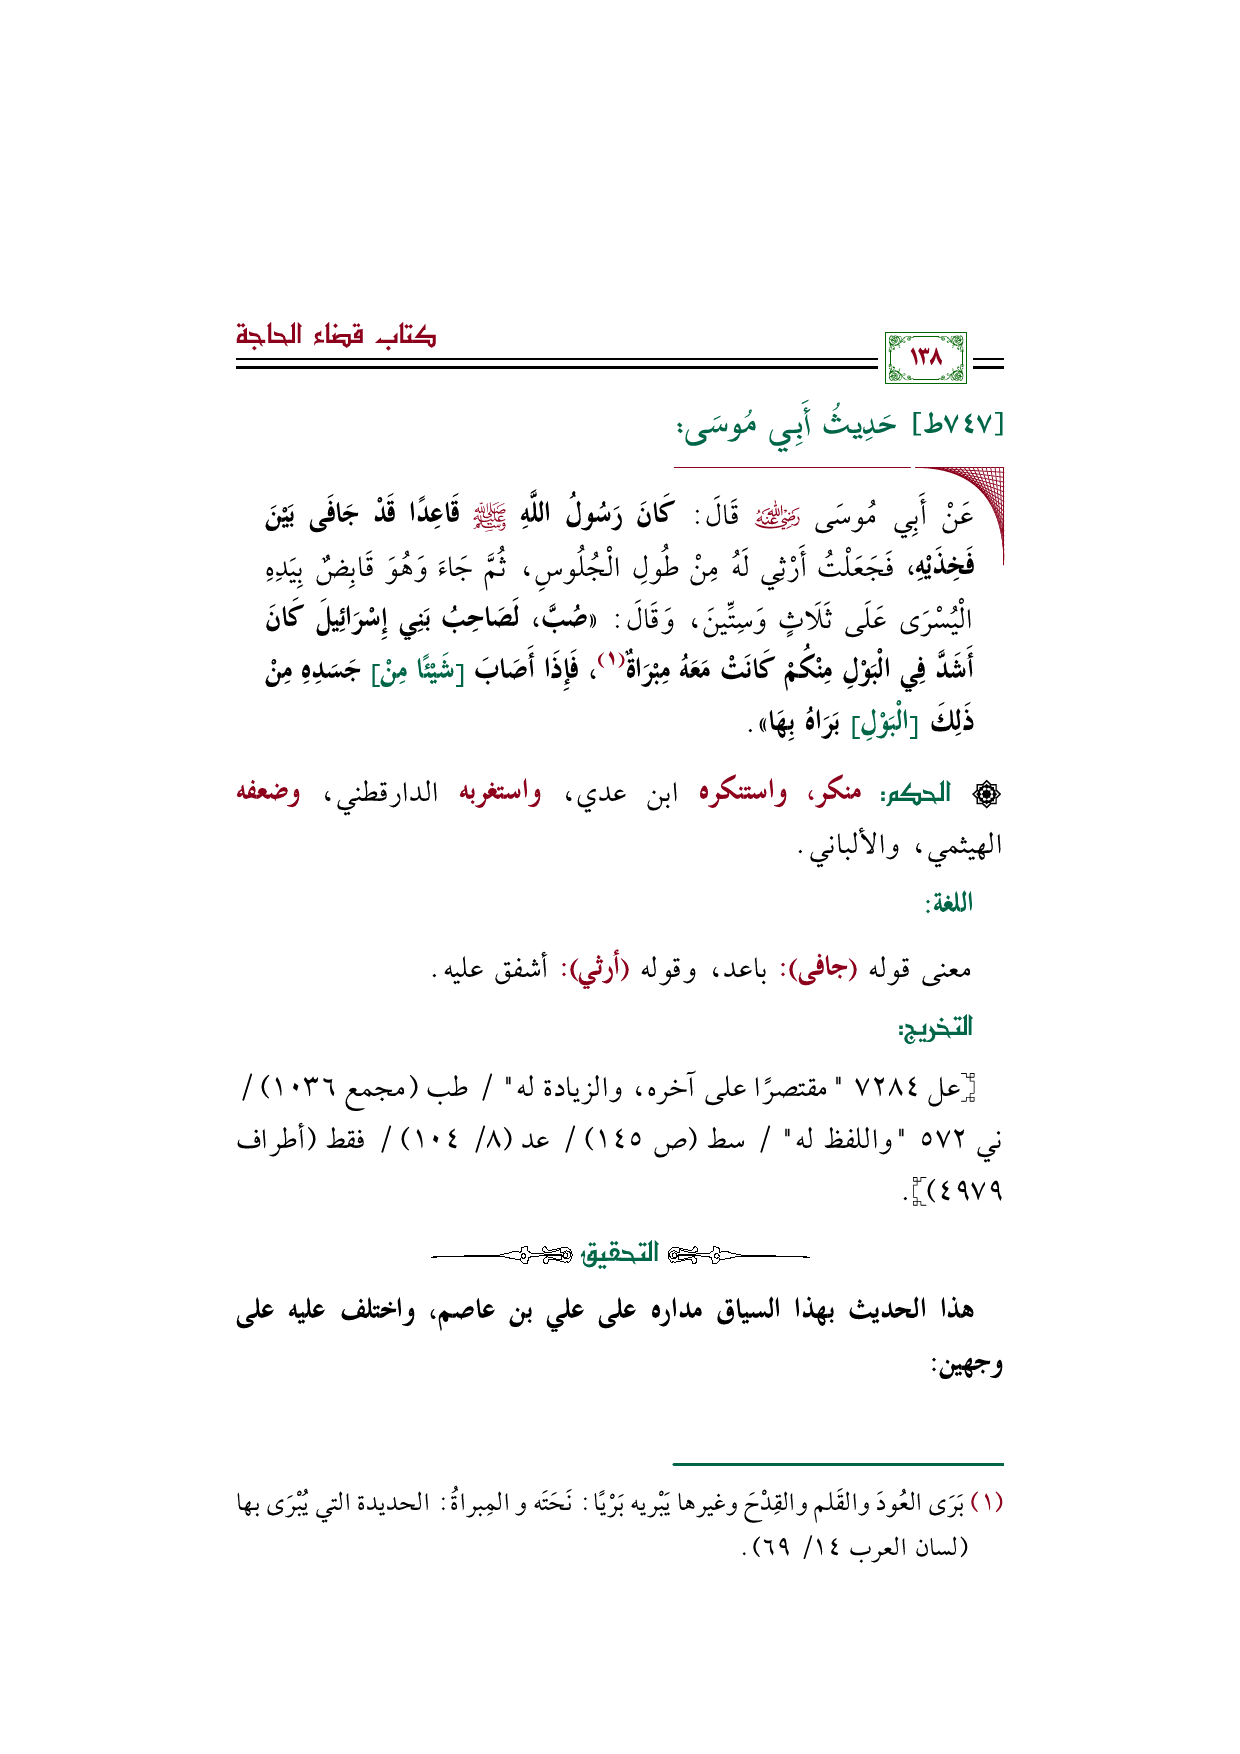 كتاب قضاء الحاجة
١٣٨
[٧٤٧ط] حَدِيثُ أَبِي مُوسَى:
عَنْ أَبِي مُوسَى رضي الله عنه قَالَ: كَانَ رَسُولُ اللَّهِ ﷺ قَاعِدًا قَدْ جَافَى بَيْنَ
فَخِذَيْهِ، فَجَعَلْتُ أَرْثِي لَهُ مِنْ طُولِ الْجُلُوسِ، ثُمَّ جَاءَ وَهُوَ قَابِضٌ بِيَدِهِ
الْيُسْرَى عَلَى ثَلَاثٍ وَسِتِّينَ، وَقَالَ: «صُبَّ، لَصَاحِبُ بَنِي إِسْرَائِيلَ كَانَ
أَشَدَّ فِي الْبَوْلِ مِنْكُمْ كَانَتْ مَعَهُ مِبْرَاةٌ(١)، فَإِذَا أَصَابَ [شَيْئًا مِنْ] جَسَدِهِ مِنْ
ذَلِكَ [الْبَوْلِ] بَرَاهُ بِهَا».
الحكم: منكر، واستنكره ابن عدي، واستغربه الدارقطني، وضعفه
الهيثمي، والألباني.
اللغة:
معنى قوله (جافى): باعد، وقوله (أرثي): أشفق عليه.
التخريج:
[عل ٧٢٨٤ "مقتصرًا على آخره، والزيادة له" / طب (مجمع ١٠٣٦) /
ني ٥٧٢ "واللفظ له" / سط (ص ١٤٥) / عد (٨/ ١٠٤) / فقط (أطراف
٤٩٧٩)].
التحقيق
هذا الحديث بهذا السياق مداره على علي بن عاصم، واختلف عليه على
وجهين:
(١) بَرَى العُودَ والقَلم والقِدْحَ وغيرها يَبْريه بَرْيًا: نَحَتَه و المِبراةُ: الحديدة التي يُبْرَى بها
(لسان العرب ١٤/ ٦٩).